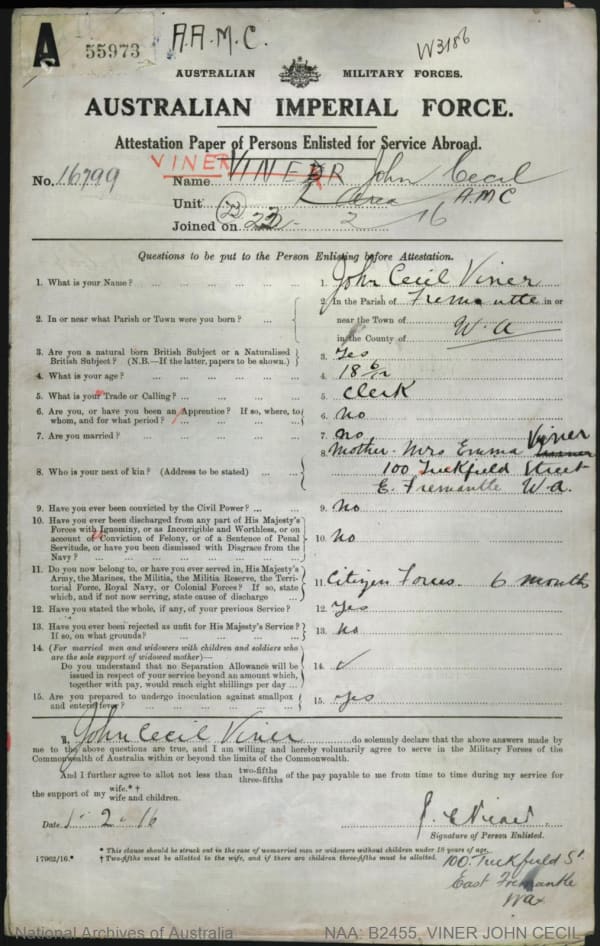 A 55973 A.A.M.C. W3186
AUSTRALIAN MILITARY FORCES.
AUSTRALIAN IMPERIAL FORCE.
Attestation Paper of Persons Enlisted for Service Abroad.
No. 16799 Name VINER John Cecil
Unit A.M.C
Joined on 22 - 2 16
Questions to be put to the Person Enlisting before Attestation.
1. What is your Name? ... 1. John Cecil Viner
2. In or near what Parish or Town were you born? ... 2. In the Parish of Fremantle in or
near the Town of
in the County of W.A
3. Are you a natural born British Subject or a Naturalised
British Subject? (N.B.—If the latter, papers to be shown.) 3. Yes
4. What is your age? ... 4. 18 6/12
5. What is your Trade or Calling? ... 5. Clerk
6. Are you, or have you been an Apprentice? If so, where, to
whom, and for what period? ... 6. no
7. Are you married? ... 7. no
8. Who is your next of kin? (Address to be stated) ... 8. Mother - Mrs Emma Viner
100 Tuckfield Street
E. Fremantle W.A.
9. Have you ever been convicted by the Civil Power? ... 9. No
10. Have you ever been discharged from any part of His Majesty's
Forces with Ignominy, or as Incorrigible and Worthless, or on
account of Conviction of Felony, or of a Sentence of Penal
Servitude, or have you been dismissed with Disgrace from the
Navy? ... 10. no
11. Do you now belong to, or have you ever served in, His Majesty's
Army, the Marines, the Militia, the Militia Reserve, the Terri-
torial Force, Royal Navy, or Colonial Forces? If so, state
which, and if not now serving, state cause of discharge 11. Citizen Forces 6 months
12. Have you stated the whole, if any, of your previous Service? 12. Yes
13. Have you ever been rejected as unfit for His Majesty's Service?
If so, on what grounds? 13. No
14. (For married men and widowers with children and soldiers who
are the sole support of widowed mother)—
Do you understand that no Separation Allowance will be
issued in respect of your service beyond an amount which,
together with pay, would reach eight shillings per day ... 14. ✓
15. Are you prepared to undergo inoculation against smallpox
and enteric fever? 15. Yes
I, John Cecil Viner do solemnly declare that the above answers made by
me to the above questions are true, and I am willing and hereby voluntarily agree to serve in the Military Forces of the
Commonwealth of Australia within or beyond the limits of the Commonwealth.
And I further agree to allot not less than two-fifths three-fifths of the pay payable to me from time to time during my service for
the support of my wife.*† wife and children.
Date 1. 2. 16 J. C Viner
Signature of Person Enlisted.
* This clause should be struck out in the case of unmarried men or widowers without children under 18 years of age.
17962/16.* † Two-fifths must be allotted to the wife, and if there are children three-fifths must be allotted.
100 Tuckfield St
East Fremantle
National Archives of Australia NAA: B2455, VINER JOHN CECIL